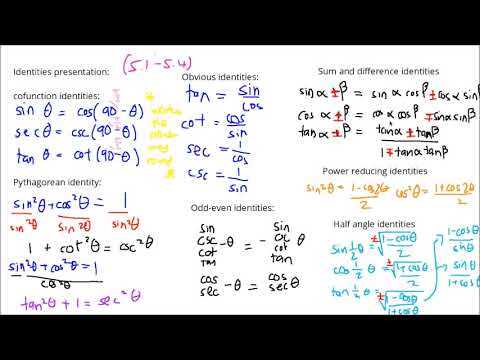 Identities presentation:
(5.1-5.4)
cofunction identities:
sin θ = cos(90-θ)
sec θ = csc(90-θ)
tan θ = cot(90-θ)
Pythagorean identity:
sin²θ + cos²θ = 1
sin²θ sin²θ sin²θ
1 + cot²θ = csc²θ
sin²θ + cos²θ = 1
cos²θ
tan²θ + 1 = sec²θ
Obvious identities:
tan = sin/cos
cot = cos/sin
sec = 1/cos
csc = 1/sin
Odd-even identities:
sin sin
csc -θ = - csc θ
cot cot
tan tan
cos -θ = cos θ
sec sec
Sum and difference identities
sin α ± β = sin α cos β ± cos α sin β
cos α ± β = cos α cos β ∓ sin α sin β
tan α ± β = tan α ± tan β / 1 ∓ tan α tan β
Power reducing identities
sin²θ = 1-cos2θ/2 cos²θ = 1+cos2θ/2
Half angle identities
sin ½ θ = ±√1-cosθ/2
cos ½ θ = ±√1+cosθ/2
tan ½ θ = ±√1-cosθ/1+cosθ
1-cosθ/sinθ
sinθ/1+cosθ